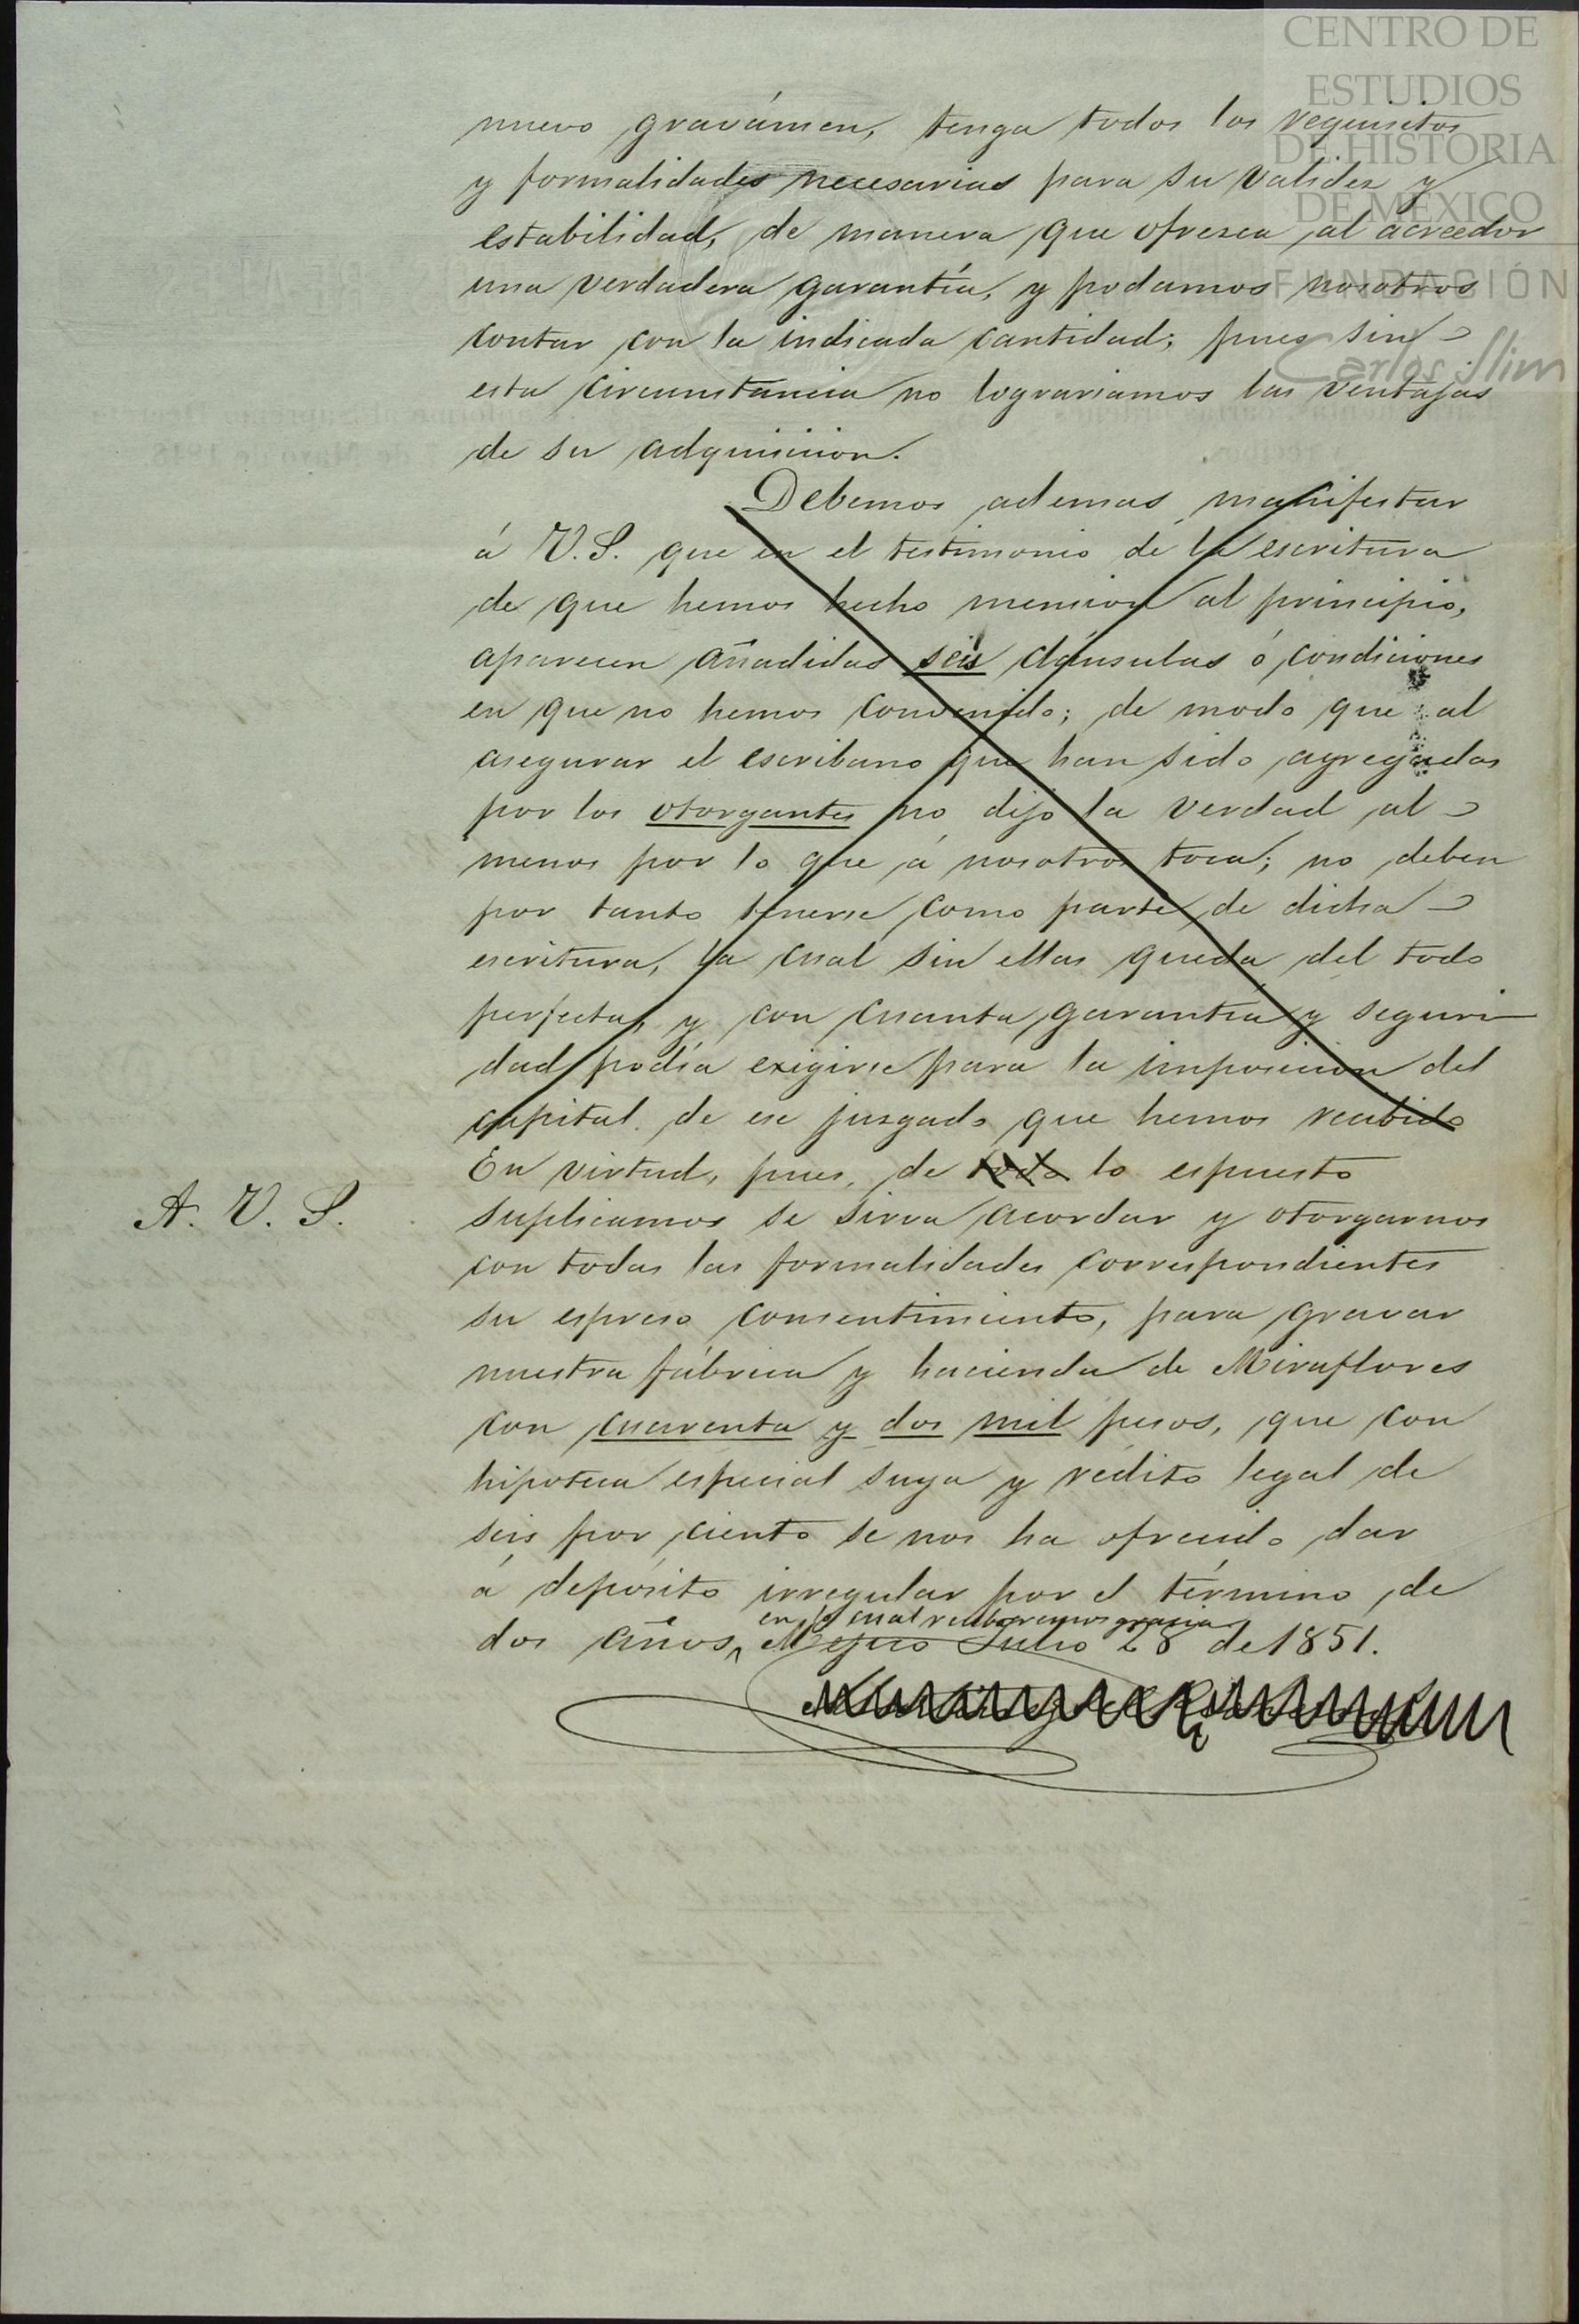 CENTRO DE
ESTUDIOS
DE HISTORIA
DE MÉXICO
FUNDACIÓN
Carlos Slim
nuevo gravámen, tenga todos los requisitos
y formalidades necesarias para su validez y
estabilidad, de manera que ofresca al acreedor
una verdadera garantía, y podamos nosotros
contar con la indicada cantidad; pues sin
esta circunstancia no lograriamos las ventajas
de su adquisicion.
Debemos ademas manifestar
á V.S. que en el testimonio de la escritura
de que hemos hecho mension al principio,
aparecen añadidas seis cláusulas ó condiciones
en que no hemos convenido; de modo que al
asegurar el escribano que han sido agregadas
por los otorgantes no dijo la verdad al
menos por lo que á nosotros toca; no deben
por tanto tenerse como parte de dicha
escritura, la cual sin ellas queda del todo
perfecta, y con cuanta garantía y seguri
dad podía exigirse para la imposicion del
capital de ese juzgado que hemos recibido
En virtud, pues, de todo lo espuesto
A. V. S.
suplicamos se sirva acordar y otorgarnos
con todas las formalidades correspondientes
su espreso consentimiento, para gravar
nuestra fábrica y hacienda de Miraflores
con cuarenta y dos mil pesos, que con
hipoteca especial suya y rédito legal de
seis por ciento se nos ha ofrecido dar
á depósito irregular por el término de
en lo cual recibiremos gracia
dos años, Mejico Julio 28 de 1851.